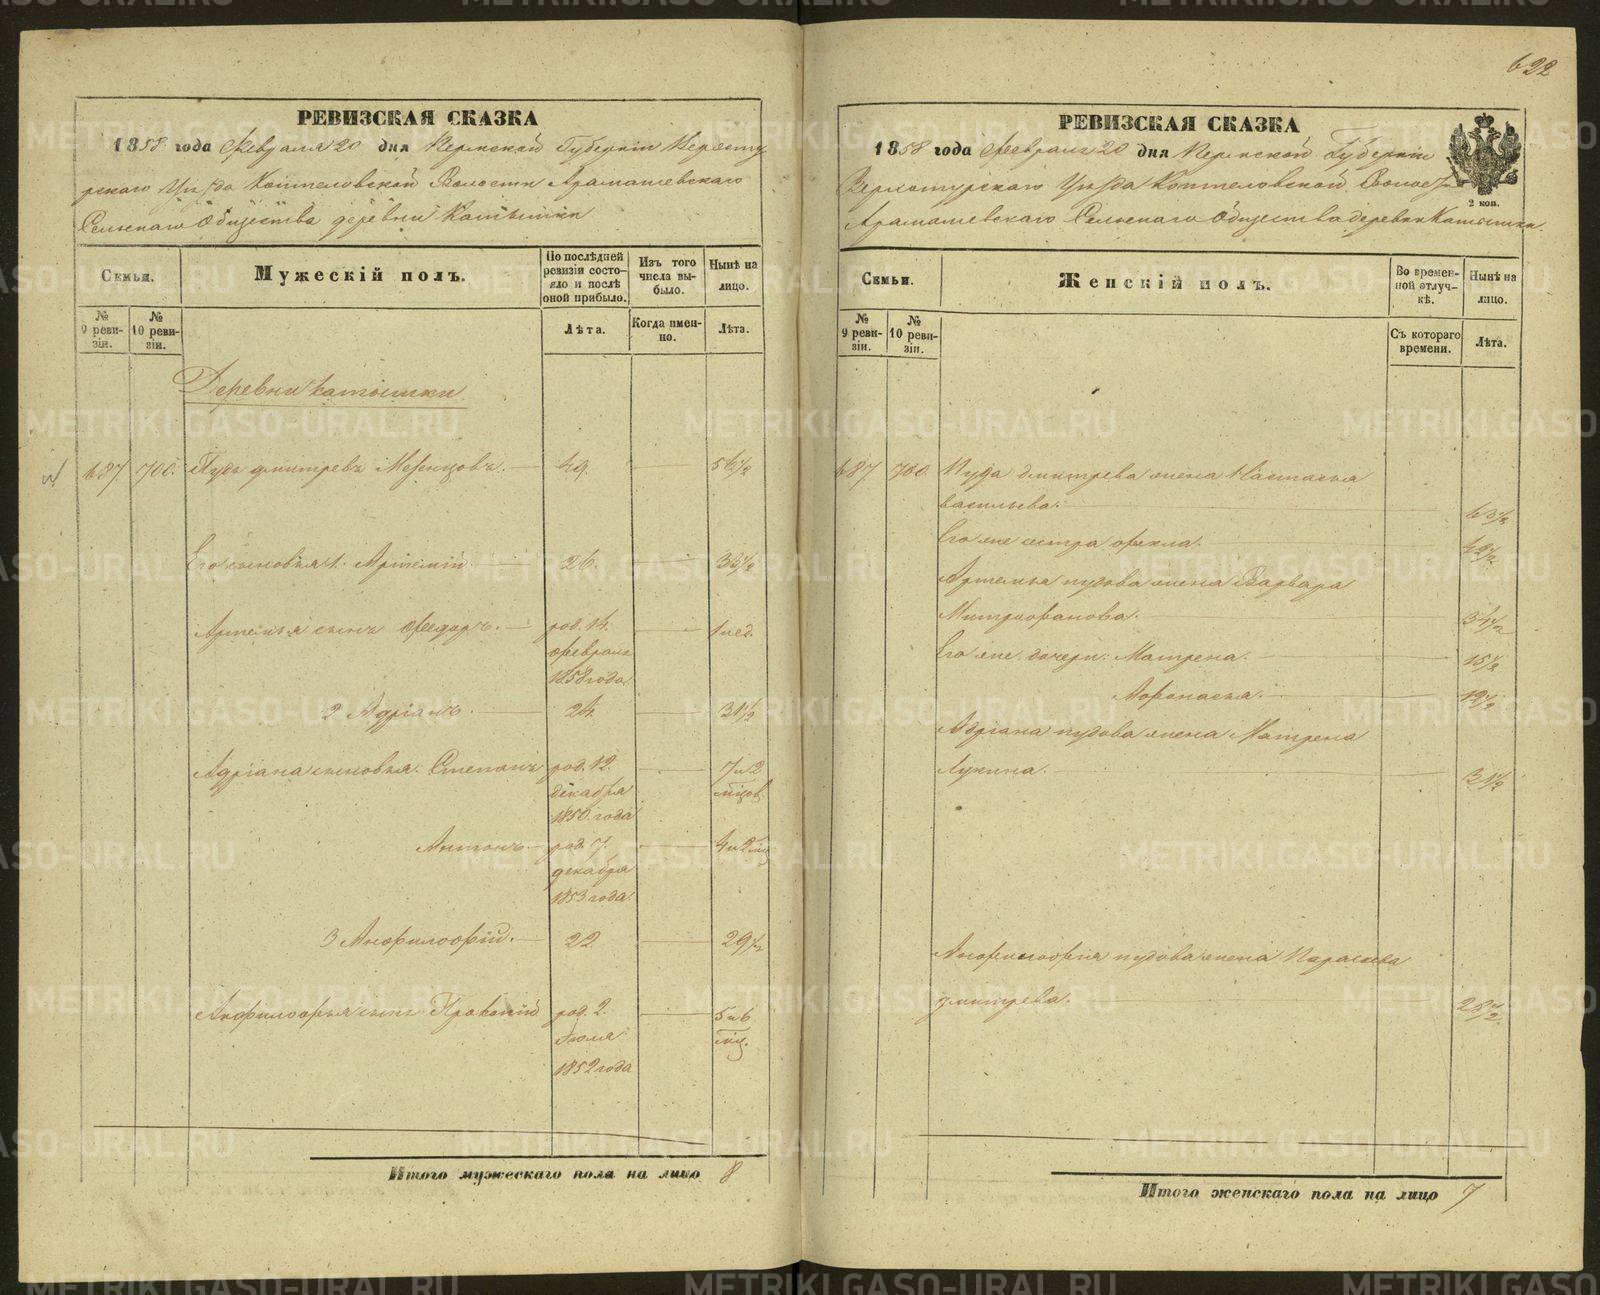 622
РЕВИЗСКАЯ СКАЗКА
1858 года Февраля 20 дня Пермской Губернии Верхоту
рскаго Уѣзда Коптеловской Волости Арамашевскаго
Сельскаго Общества деревни Катышки
Семьи.
Мужескій полъ.
По послѣдней ревизіи состояло и послѣ оной прибыло.
Изъ того числа выбыло.
Нынѣ на лицо.
№ 9 ревизіи.
№ 10 ревизіи.
Лѣта.
Когда именно.
Лѣта.
Деревни Катышки
687. 700. Пудъ Дмитревъ Мезенцовъ. 49. 56 1/2
Его сыновья 1. Артемій 26. 33 1/2
Артемья сынъ Федоръ. род. 14. 1 нед.
февраля
1858 года
2 Адріанъ. 24. 31 1/2
Адріана сыновья. Степанъ род. 12. 7 и 2
декабря мѣсяц.
1850 года
Антонъ род. 7. 4 и 2 мѣс
декабря
1853 года.
3 Анфилофій. 22 29 1/2
Анфилофья сынъ Прокопій род. 2. 5 и 6
Іюля мѣс.
1852 года
Итого мужескаго пола на лицо 8
РЕВИЗСКАЯ СКАЗКА
1858 года Февраля 20 дня Пермской Губерніи
Верхотурскаго Уѣзда Коптеловской Волости
Арамашевскаго Сельскаго Общества деревни Катышки.
2 коп.
Семьи.
Женскій полъ.
Во временной отлучкѣ.
Нынѣ на лицо.
№ 9 ревизіи.
№ 10 ревизіи.
Съ котораго времени.
Лѣта.
687 700. Пуда Дмитрева жена Настасья
васильева. 63 1/2
Его же сестра Фекла. 42 1/2
Артемья пудова жена Варвара
Митрофанова. 34 1/2
Его же дочери: Матрена. 15 1/2
Афонасья. 12 1/2
Адріана пудова жена Матрена
Лукина. 31 1/2
Анфилофія пудова жена Парасковья
дмитрева. 28 1/2
Итого женскаго пола на лицо 7
METRIKI.GASO-URAL.RU